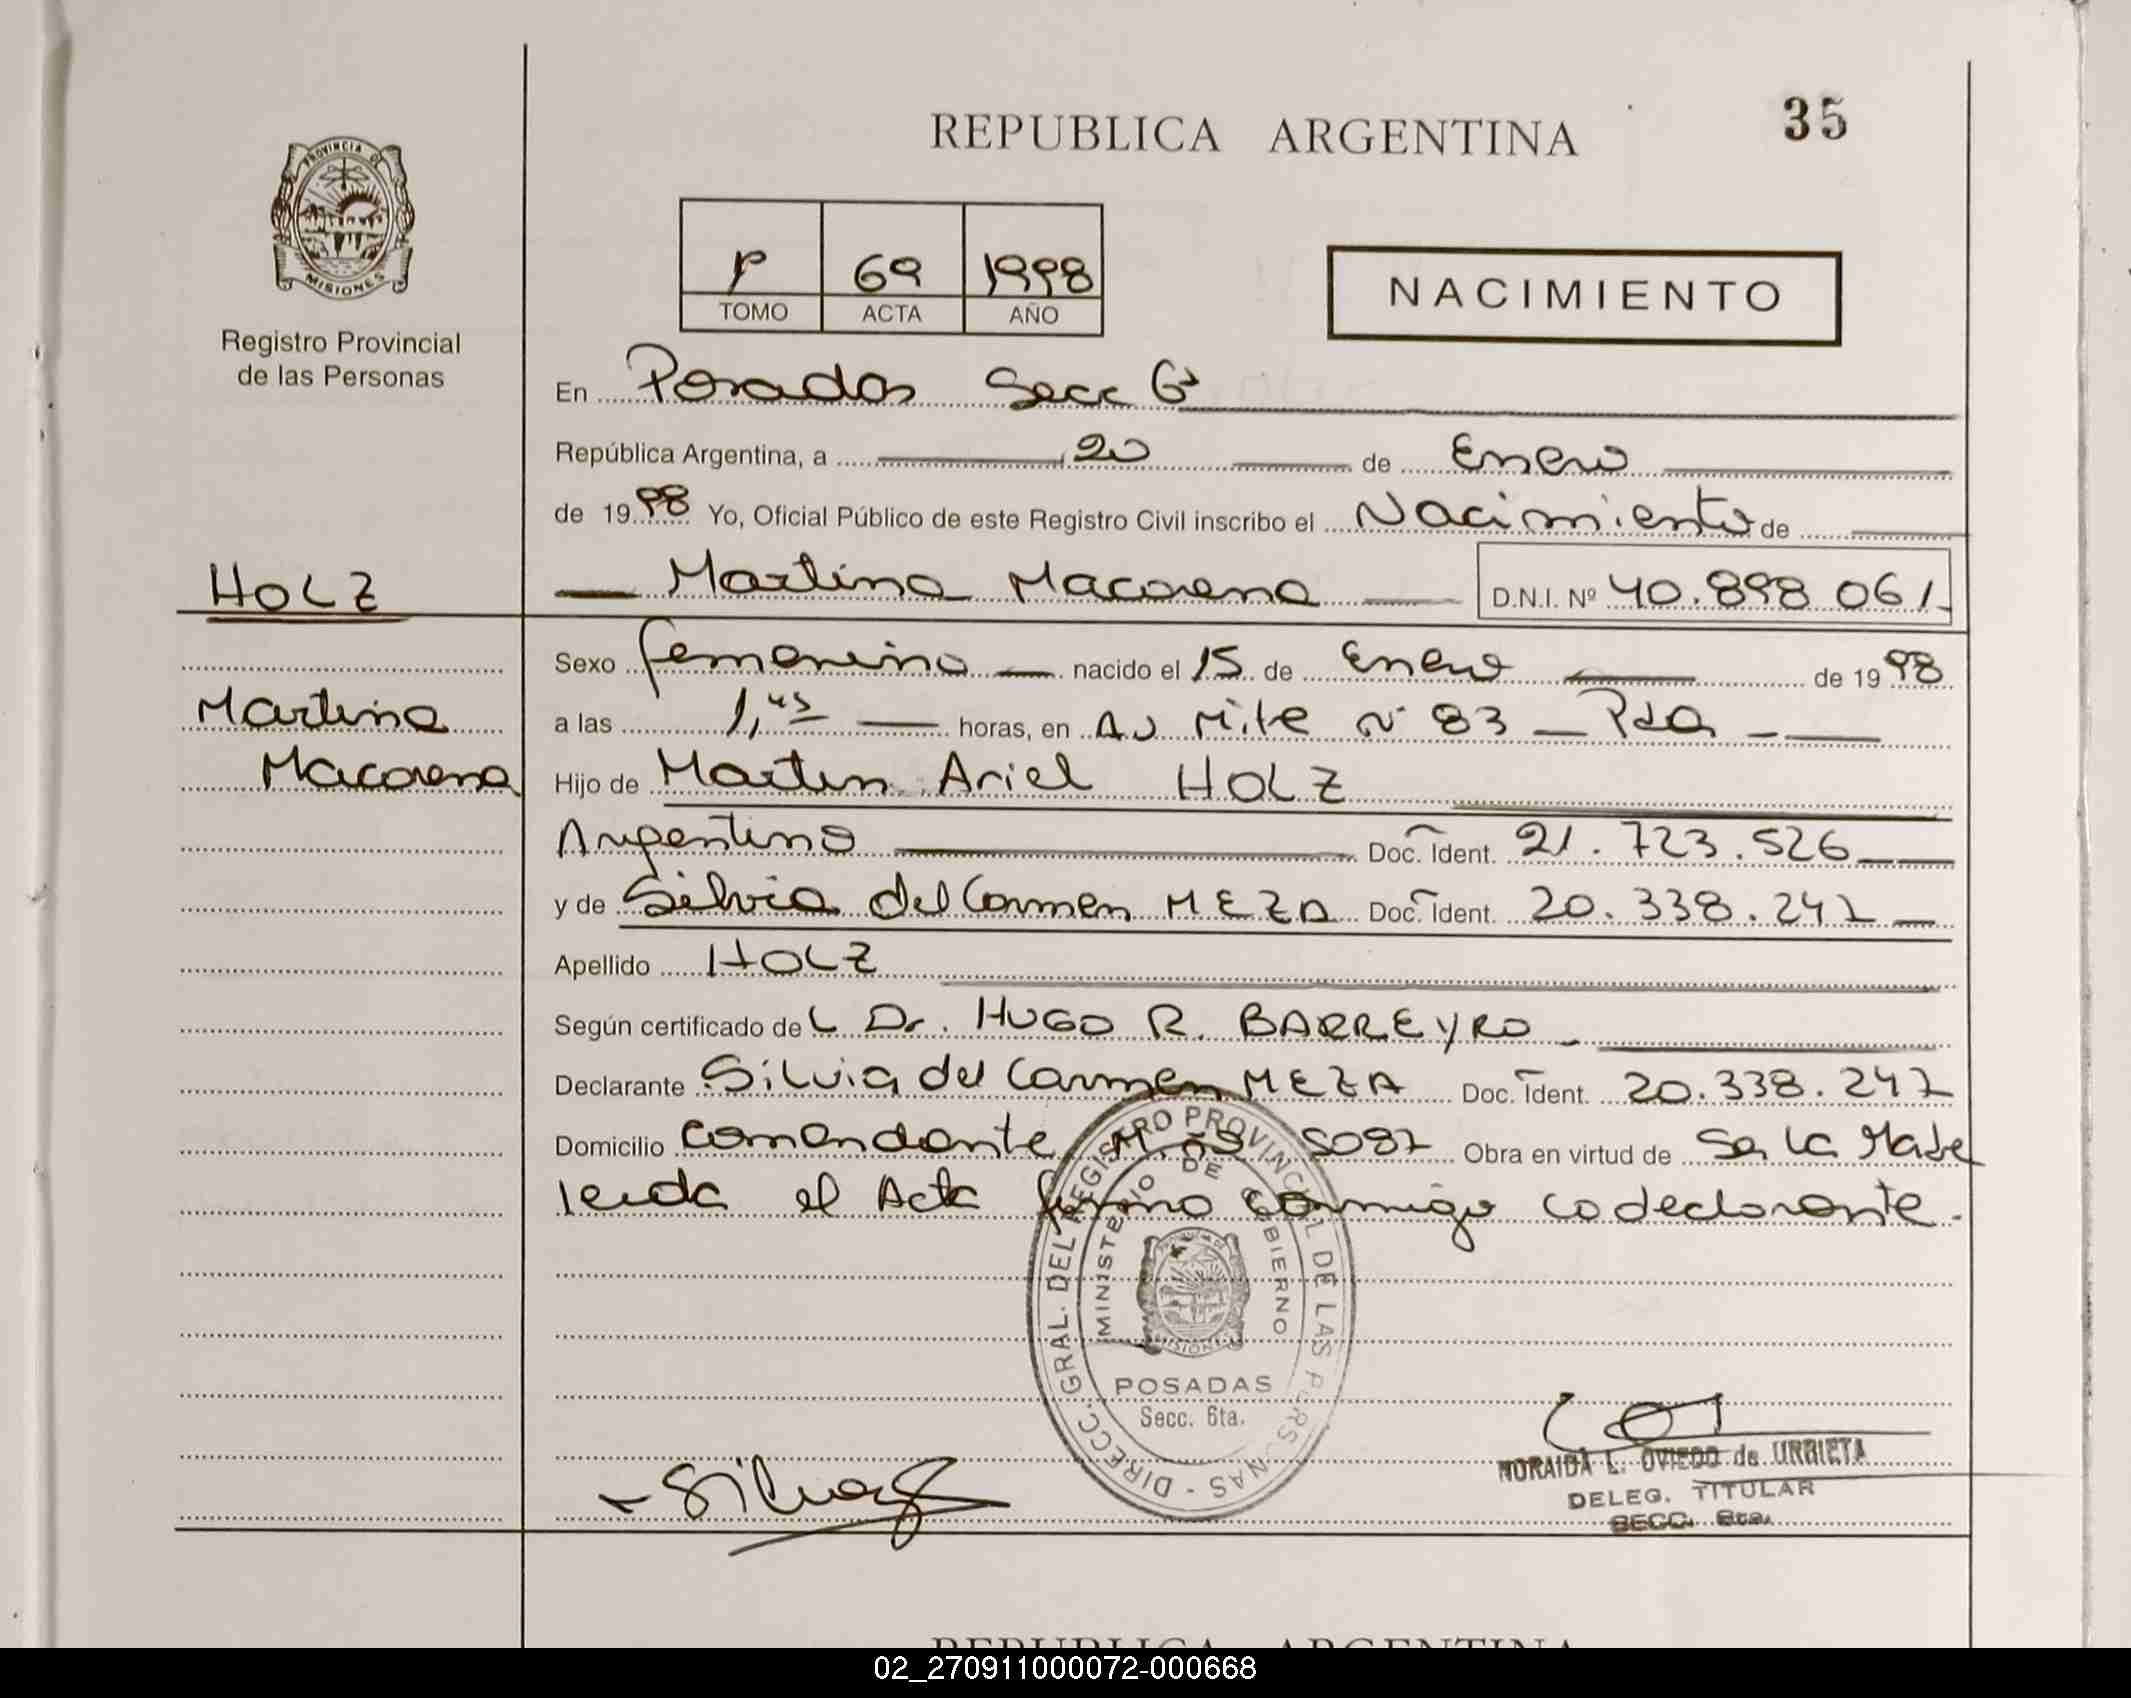 35
REPUBLICA ARGENTINA
PROVINCIA DE
MISIONES
Registro Provincial
de las Personas
69 1998
TOMO ACTA AÑO
NACIMIENTO
En Posadas Secc 6ª
República Argentina, a 20 de Enero
de 1998 Yo, Oficial Público de este Registro Civil inscribo el Nacimiento de
HOLZ
Martina Macarena D.N.I. Nº 40.898.061
Martina
Macarena
Sexo femenino nacido el 15 de Enero de 1998
a las 1,45 horas, en Av Mitre Nº 83 Pdas
Hijo de Martin Ariel HOLZ
Argentino Doc. Ident. 21.723.526
y de Silvia del Carmen MEZA Doc. Ident. 20.338.247
Apellido HOLZ
Según certificado del Dr. HUGO R. BARREYRO
Declarante Silvia del Carmen MEZA Doc. Ident. 20.338.247
Domicilio Comandante 5087 Obra en virtud de Ser la Madre
leida el Acta firma conmigo la declarante.
DIRECC. GRAL. DEL REGISTRO PROVINCIAL DE LAS PERSONAS -
MINISTERIO DE GOBIERNO
MISIONES
POSADAS
Secc. 6ta.
Silvia
NORAIDA L. OVIEDO de URBIETA
DELEG. TITULAR
SECC. 6ta.
REPUBLICA ARGENTINA
02_270911000072-000668